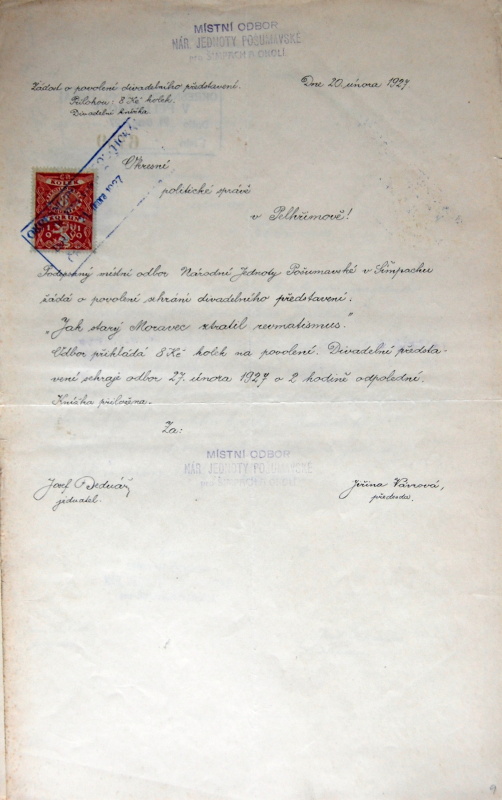 MÍSTNÍ ODBOR
NÁR. JEDNOTY POŠUMAVSKÉ
pro ŠIMPACH A OKOLÍ
Žádost o povolení divadelního představení.
Dne 20. února 1927.
Přílohou: 8 Kč kolek.
Divadelní knížka.
Okresní
politické správě
v Pelhřimově!
KOLEK
Podepsaný místní odbor Národní Jednoty Pošumavské v Šimpachu
žádá o povolení sehrání divadelního představení.
„Jak starý Moravec ztratil revmatismus."
Odbor přikládá 8 Kč kolek na povolení. Divadelní předsta-
vení sehraje odbor 27. února 1927 o 2 hodině odpolední.
Knížka přiložena.
Za:
MÍSTNÍ ODBOR
NÁR. JEDNOTY POŠUMAVSKÉ
Josef Bednář
jednatel.
Jiřina Vávrová,
předseda.